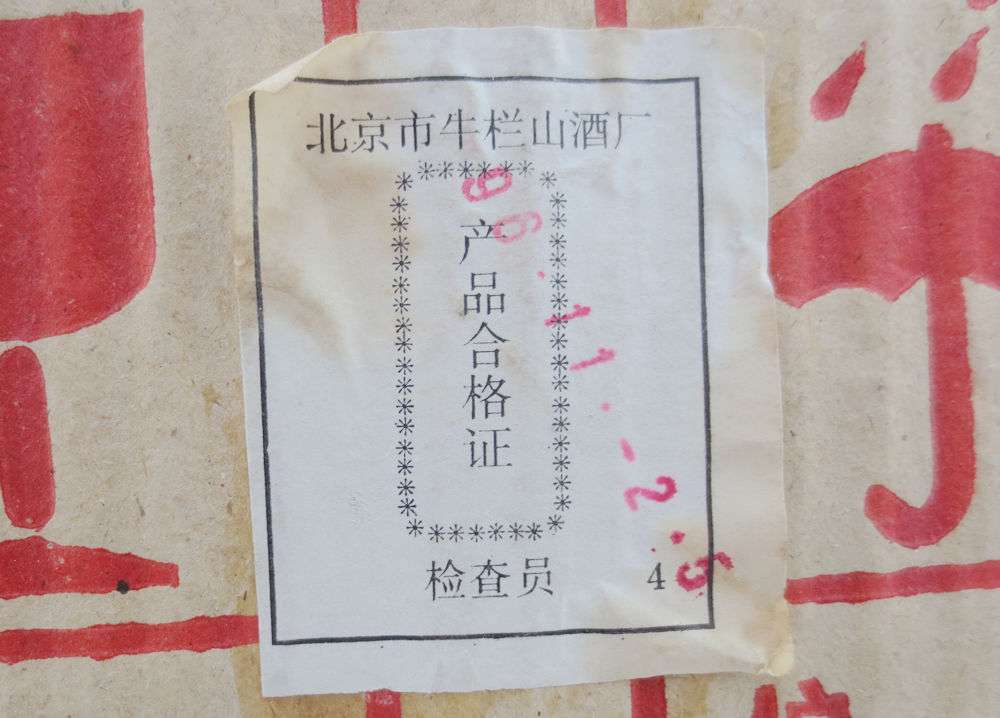 北京市牛栏山酒厂
产品合格证
96.11.-2.5
检查员 4